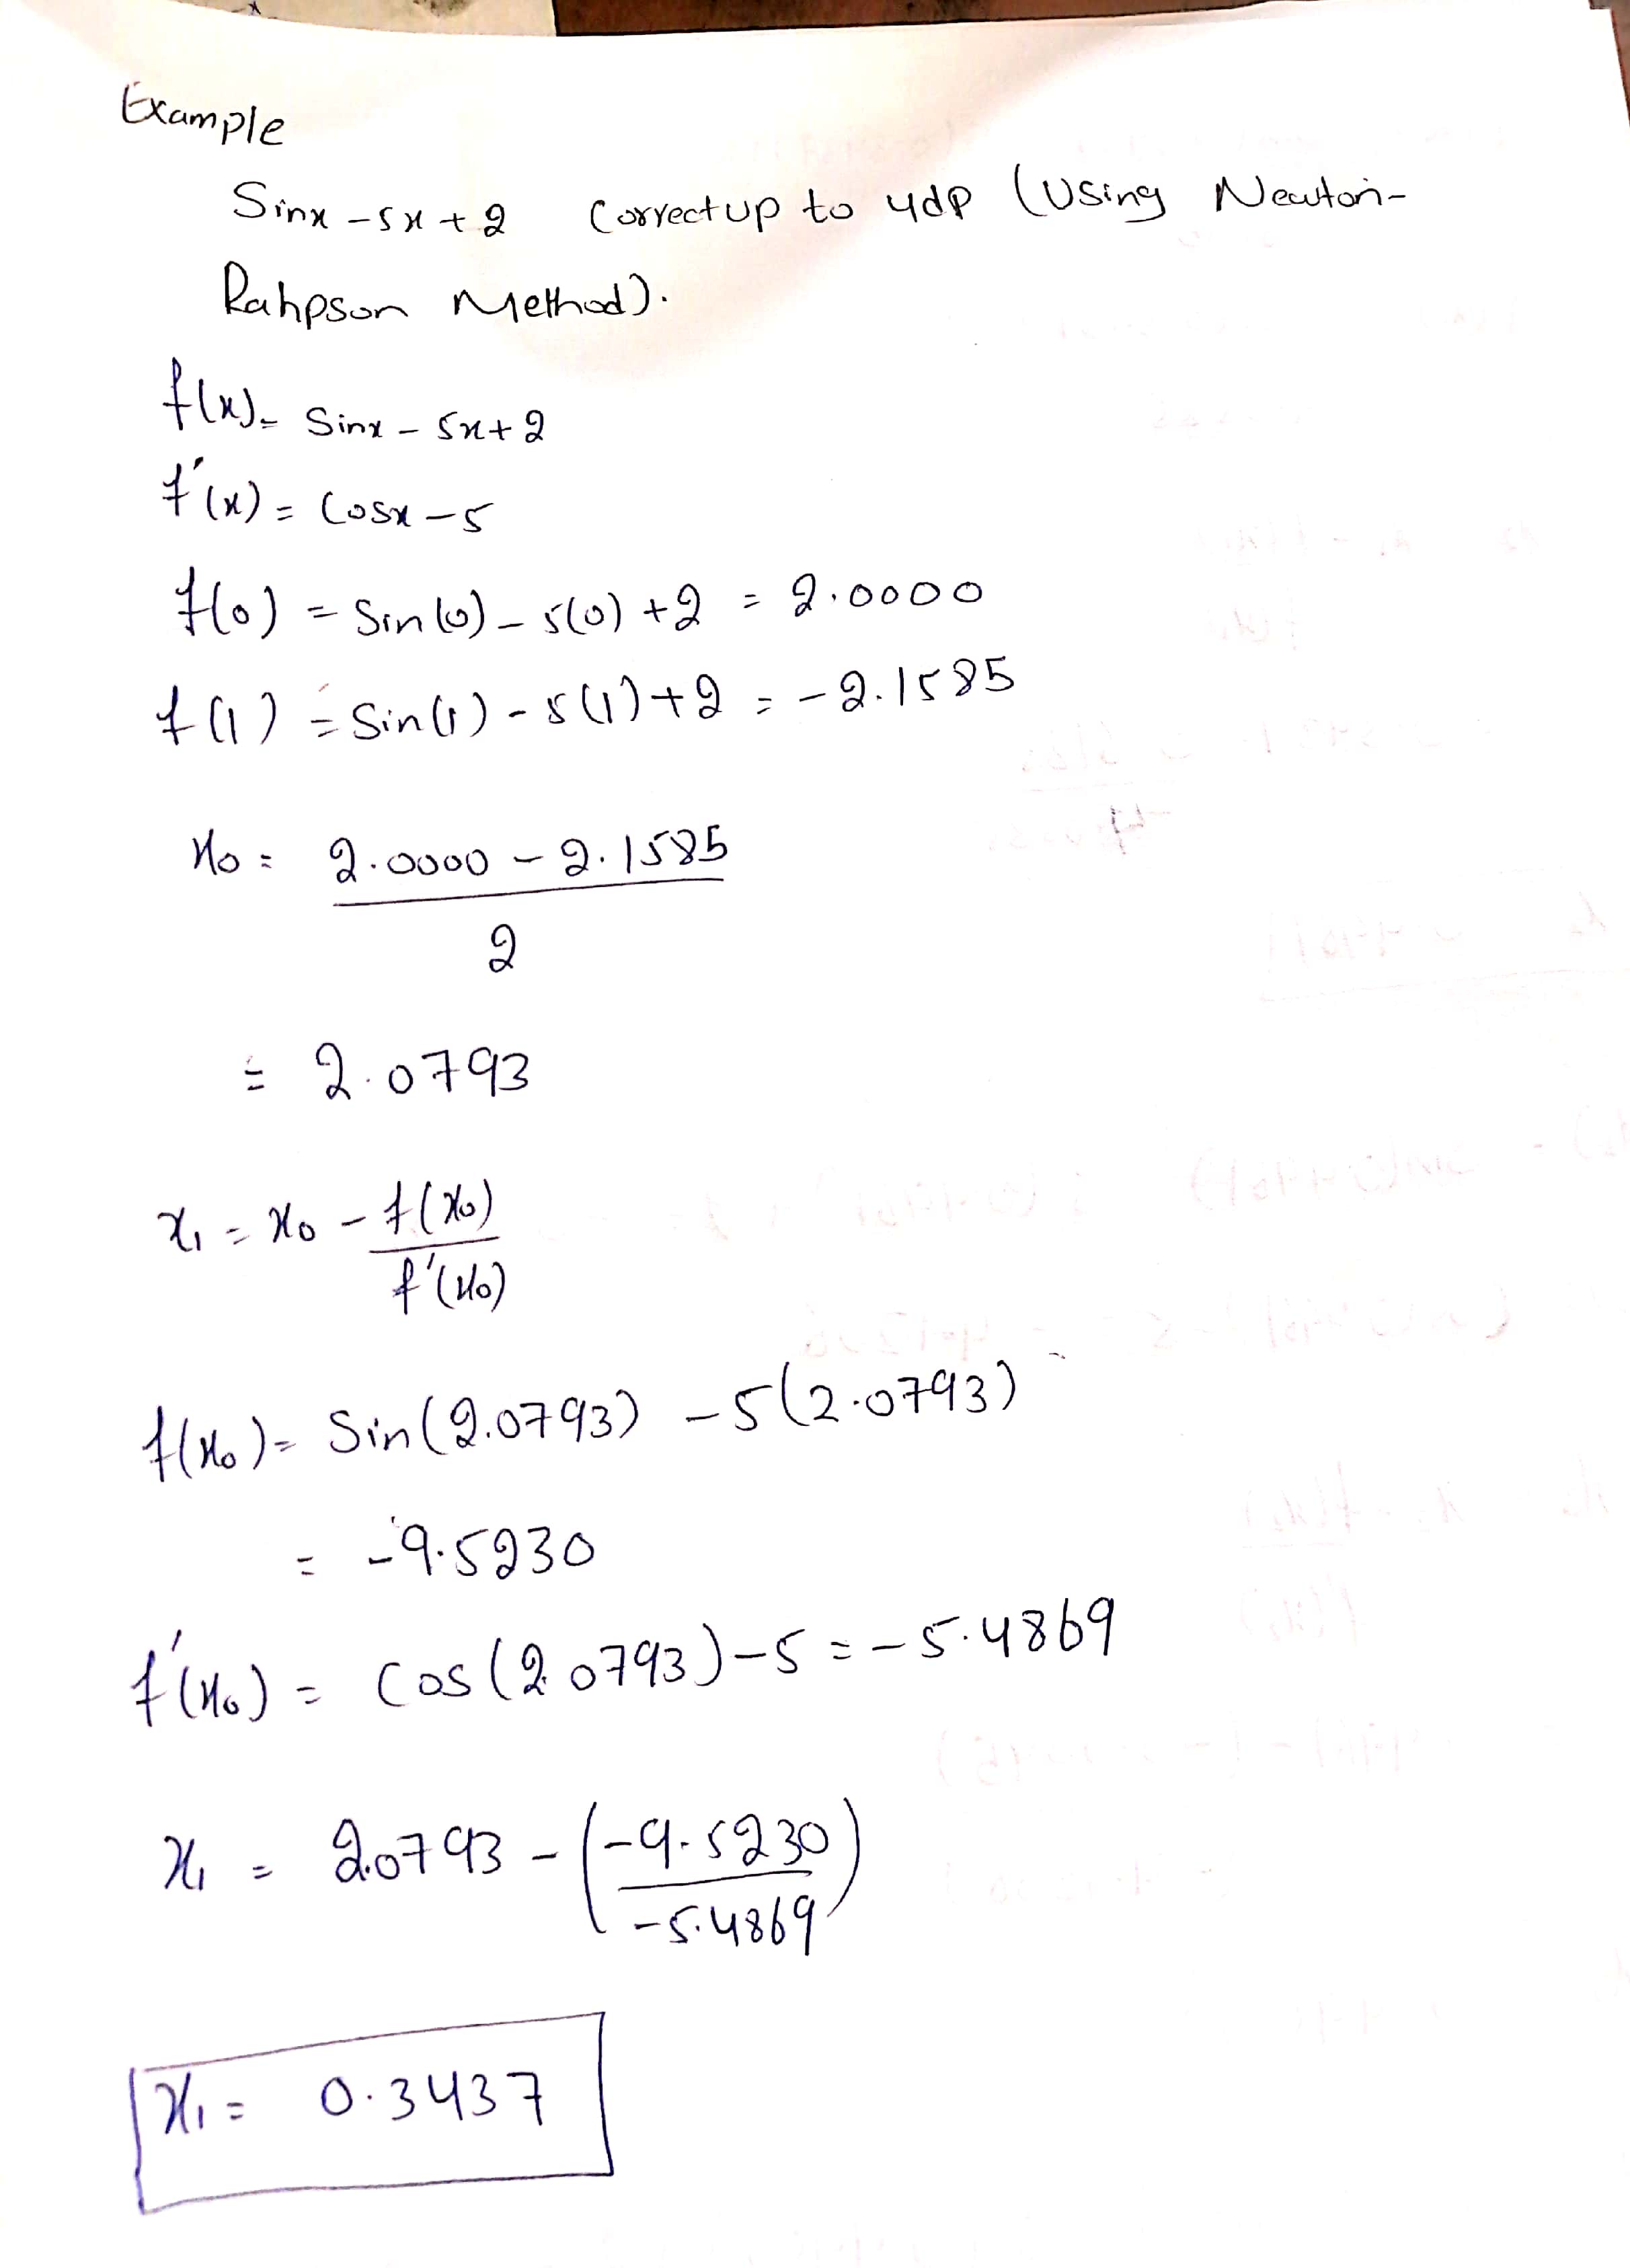 Example
Sinx - 5x + 2 Correct up to 4dp (Using Newton-
Rahpson Method).
f(x) = Sinx - 5x + 2
f'(x) = Cosx - 5
f(0) = Sin(0) - 5(0) + 2 = 2.0000
f(1) = Sin(1) - 5(1) + 2 = -2.1585
x₀ = 2.0000 - 2.1585
2
= 2.0793
x₁ = x₀ - f(x₀)
f'(x₀)
f(x₀) = Sin(2.0793) - 5(2.0793)
= -9.5230
f'(x₀) = Cos(2.0793) - 5 = -5.4869
x₁ = 2.0793 - (-9.5230
-5.4869)
x₁ = 0.3437